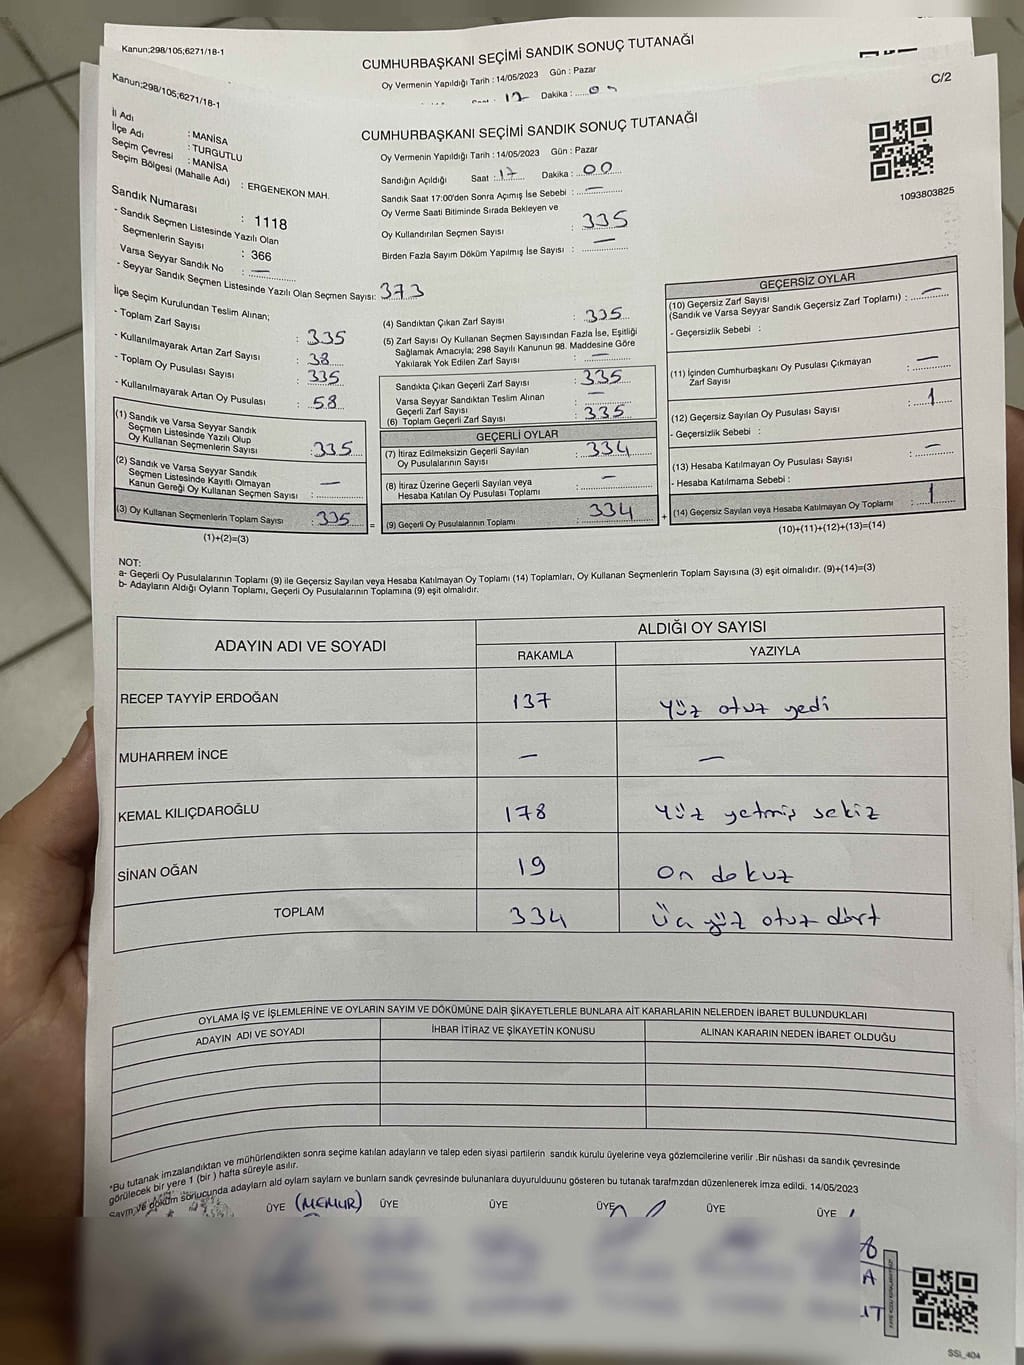 Kanun;298/105;6271/18-1
CUMHURBAŞKANI SEÇİMİ SANDIK SONUÇ TUTANAĞI
Oy Vermenin Yapıldığı Tarih : 14/05/2023 Gün : Pazar
17 Dakika :
Kanun;298/105;6271/18-1
C/2
CUMHURBAŞKANI SEÇİMİ SANDIK SONUÇ TUTANAĞI
İl Adı : MANİSA
İlçe Adı : TURGUTLU
Seçim Çevresi : MANİSA
Seçim Bölgesi (Mahalle Adı) : ERGENEKON MAH.
Sandık Numarası : 1118
- Sandık Seçmen Listesinde Yazılı Olan
Seçmenlerin Sayısı : 366
Varsa Seyyar Sandık No : —
- Seyyar Sandık Seçmen Listesinde Yazılı Olan Seçmen Sayısı: 373
Oy Vermenin Yapıldığı Tarih : 14/05/2023 Gün : Pazar
Sandığın Açıldığı Saat : 17 Dakika : 00
Sandık Saat 17:00'den Sonra Açımış İse Sebebi : —
Oy Verme Saati Bitiminde Sırada Bekleyen ve
Oy Kullandırılan Seçmen Sayısı : 335
Birden Fazla Sayım Döküm Yapılmış İse Sayısı : —
1093803825
İlçe Seçim Kurulundan Teslim Alınan;
- Toplam Zarf Sayısı : 335
- Kullanılmayarak Artan Zarf Sayısı : 38
- Toplam Oy Pusulası Sayısı : 335
- Kullanılmayarak Artan Oy Pusulası : 58
(1) Sandık ve Varsa Seyyar Sandık
Seçmen Listesinde Yazılı Olup
Oy Kullanan Seçmenlerin Sayısı : 335
(2) Sandık ve Varsa Seyyar Sandık
Seçmen Listesinde Kayıtlı Olmayan
Kanun Gereği Oy Kullanan Seçmen Sayısı : —
(3) Oy Kullanan Seçmenlerin Toplam Sayısı : 335
(1)+(2)=(3)
(4) Sandıktan Çıkan Zarf Sayısı : 335
(5) Zarf Sayısı Oy Kullanan Seçmen Sayısından Fazla İse, Eşitliği
Sağlamak Amacıyla; 298 Sayılı Kanunun 98. Maddesine Göre
Yakılarak Yok Edilen Zarf Sayısı : —
Sandıkta Çıkan Geçerli Zarf Sayısı : 335
Varsa Seyyar Sandıktan Teslim Alınan
Geçerli Zarf Sayısı : —
(6) Toplam Geçerli Zarf Sayısı : 335
GEÇERLİ OYLAR
(7) İtiraz Edilmeksizin Geçerli Sayılan
Oy Pusulalarının Sayısı : 334
(8) İtiraz Üzerine Geçerli Sayılan veya
Hesaba Katılan Oy Pusulası Toplamı : —
= (9) Geçerli Oy Pusulalarının Toplamı : 334 +
GEÇERSİZ OYLAR
(10) Geçersiz Zarf Sayısı
(Sandık ve Varsa Seyyar Sandık Geçersiz Zarf Toplamı) : —
- Geçersizlik Sebebi :
(11) İçinden Cumhurbaşkanı Oy Pusulası Çıkmayan
Zarf Sayısı : —
(12) Geçersiz Sayılan Oy Pusulası Sayısı : 1
- Geçersizlik Sebebi :
(13) Hesaba Katılmayan Oy Pusulası Sayısı : —
- Hesaba Katılmama Sebebi :
(14) Geçersiz Sayılan veya Hesaba Katılmayan Oy Toplamı : 1
(10)+(11)+(12)+(13)=(14)
NOT:
a- Geçerli Oy Pusulalarının Toplamı (9) ile Geçersiz Sayılan veya Hesaba Katılmayan Oy Toplamı (14) Toplamları, Oy Kullanan Seçmenlerin Toplam Sayısına (3) eşit olmalıdır. (9)+(14)=(3)
b- Adayların Aldığı Oyların Toplamı, Geçerli Oy Pusulalarının Toplamına (9) eşit olmalıdır.
ADAYIN ADI VE SOYADI
ALDIĞI OY SAYISI
RAKAMLA YAZIYLA
RECEP TAYYİP ERDOĞAN 137 Yüz otuz yedi
MUHARREM İNCE — —
KEMAL KILIÇDAROĞLU 178 Yüz yetmiş sekiz
SİNAN OĞAN 19 On dokuz
TOPLAM 334 Üç yüz otuz dört
OYLAMA İŞ VE İŞLEMLERİNE VE OYLARIN SAYIM VE DÖKÜMÜNE DAİR ŞİKAYETLERLE BUNLARA AİT KARARLARIN NELERDEN İBARET BULUNDUKLARI
ADAYIN ADI VE SOYADI İHBAR İTİRAZ VE ŞİKAYETİN KONUSU ALINAN KARARIN NEDEN İBARET OLDUĞU
*Bu tutanak imzalandıktan ve mühürlendikten sonra seçime katılan adayların ve talep eden siyasi partilerin sandık kurulu üyelerine veya gözlemcilerine verilir .Bir nüshası da sandık çevresinde
görülecek bir yere 1 (bir ) hafta süreyle asılır.
Sayım ve döküm sonucunda adayların ald oyların sayların ve bunların sandık çevresinde bulunanlara duyurulduunu gösteren bu tutanak tarafmzdan düzenlenerek imza edildi. 14/05/2023
ÜYE (MEMUR) ÜYE ÜYE ÜYE ÜYE ÜYE
A
SSİ_404